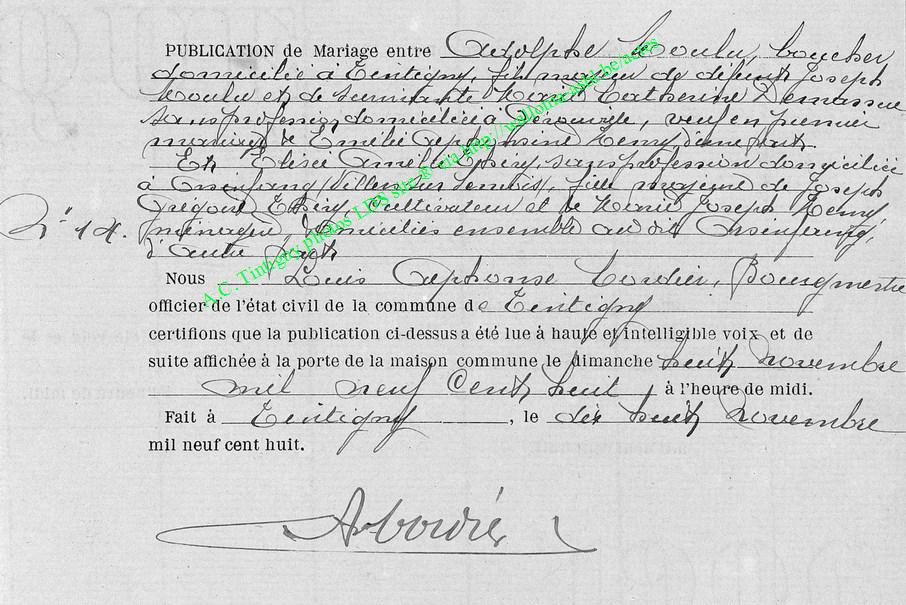 PUBLICATION de Mariage entre Adolphe Goulu, boucher
domicilié à Tintigny, fils majeur de défunt Joseph
Goulu et de survivante Marie Catherine
sans profession domiciliée à, veuf en premier
mariage de Emélie Alphonsine Remy, d'une part
Et Elisée Thiry, sans profession domiciliée
à Ansenfang, fille majeure de Joseph
N° 14.
Grégoire Thiry, cultivateur et de Marie Joseph Remy
ménagère, domiciliés ensemble au dit Ansenfang,
d'autre part
Nous Louis Alphonse Cordier, Bourgmestre
officier de l'état civil de la commune de Tintigny
certifions que la publication ci-dessus a été lue à haute et intelligible voix et de
suite affichée à la porte de la maison commune le dimanche huit novembre
mil neuf cent huit, à l'heure de midi.
Fait à Tintigny, le dix huit novembre
mil neuf cent huit.
A.C. Tintigny photos LDS sur & via http://wallonia-asbl.be/actes